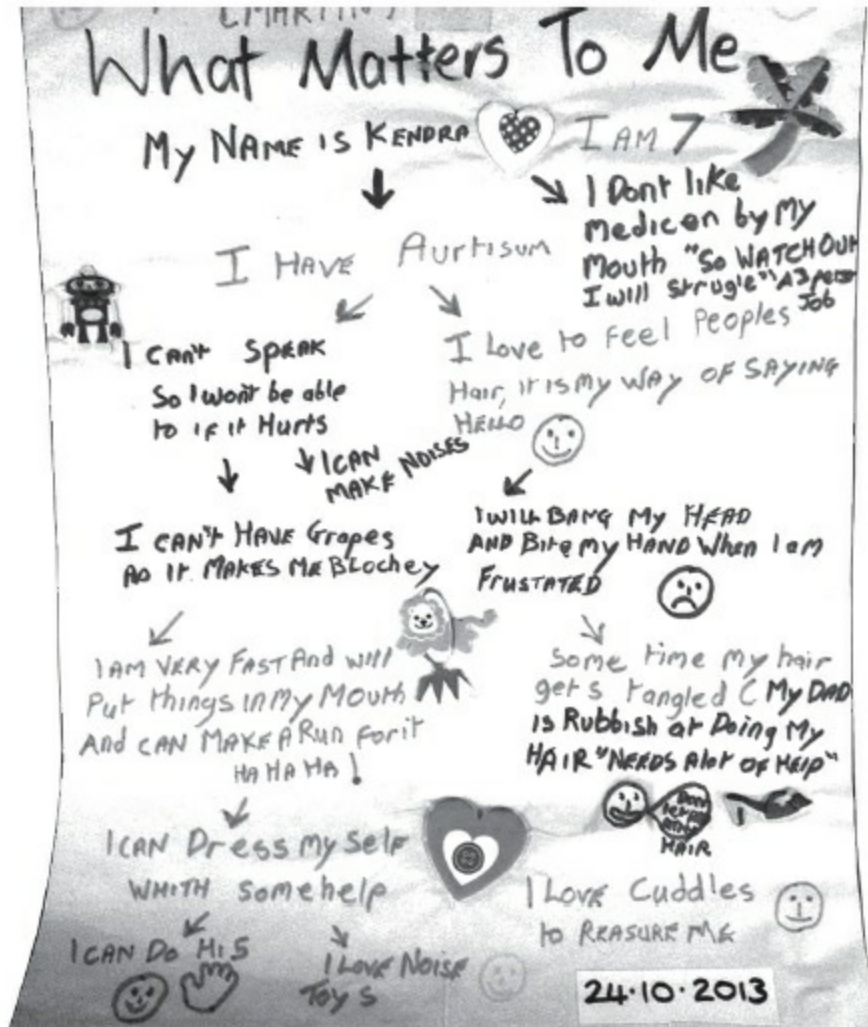 What Matters To Me
My NAME is KENDRA
I AM 7
I Dont like
Medicen by My
Mouth "So WATCH OUT
I will strugle" A 3 person
Job
I HAVE AURTISUM
I CAn't SPEAK
So I won't be able
to if it Hurts
I CAN
MAKE NOISES
I Love to Feel Peoples
Hair, it is my WAY OF SAYING
HELLO
I CAN't HAVE Grapes
AD IT MAKES ME BLochey
I WILL BANG My HEAD
AND Bite my HAND When I am
FRUSTATED
I AM VERY FAST And will
Put things in My Mouth
And CAN MAKE A RUN For it
HA HA HA !
Some time my hair
gets tangled ( My DAD
is Rubbish at Doing My
HAIR "NEEDS Alot OF HElp"
HAIR
I CAN Dress my Self
WHITH somehelp
I CAN Do Hi 5
I Love NOISE
Toy S
I Love Cuddles
to REASURE ME
24.10.2013